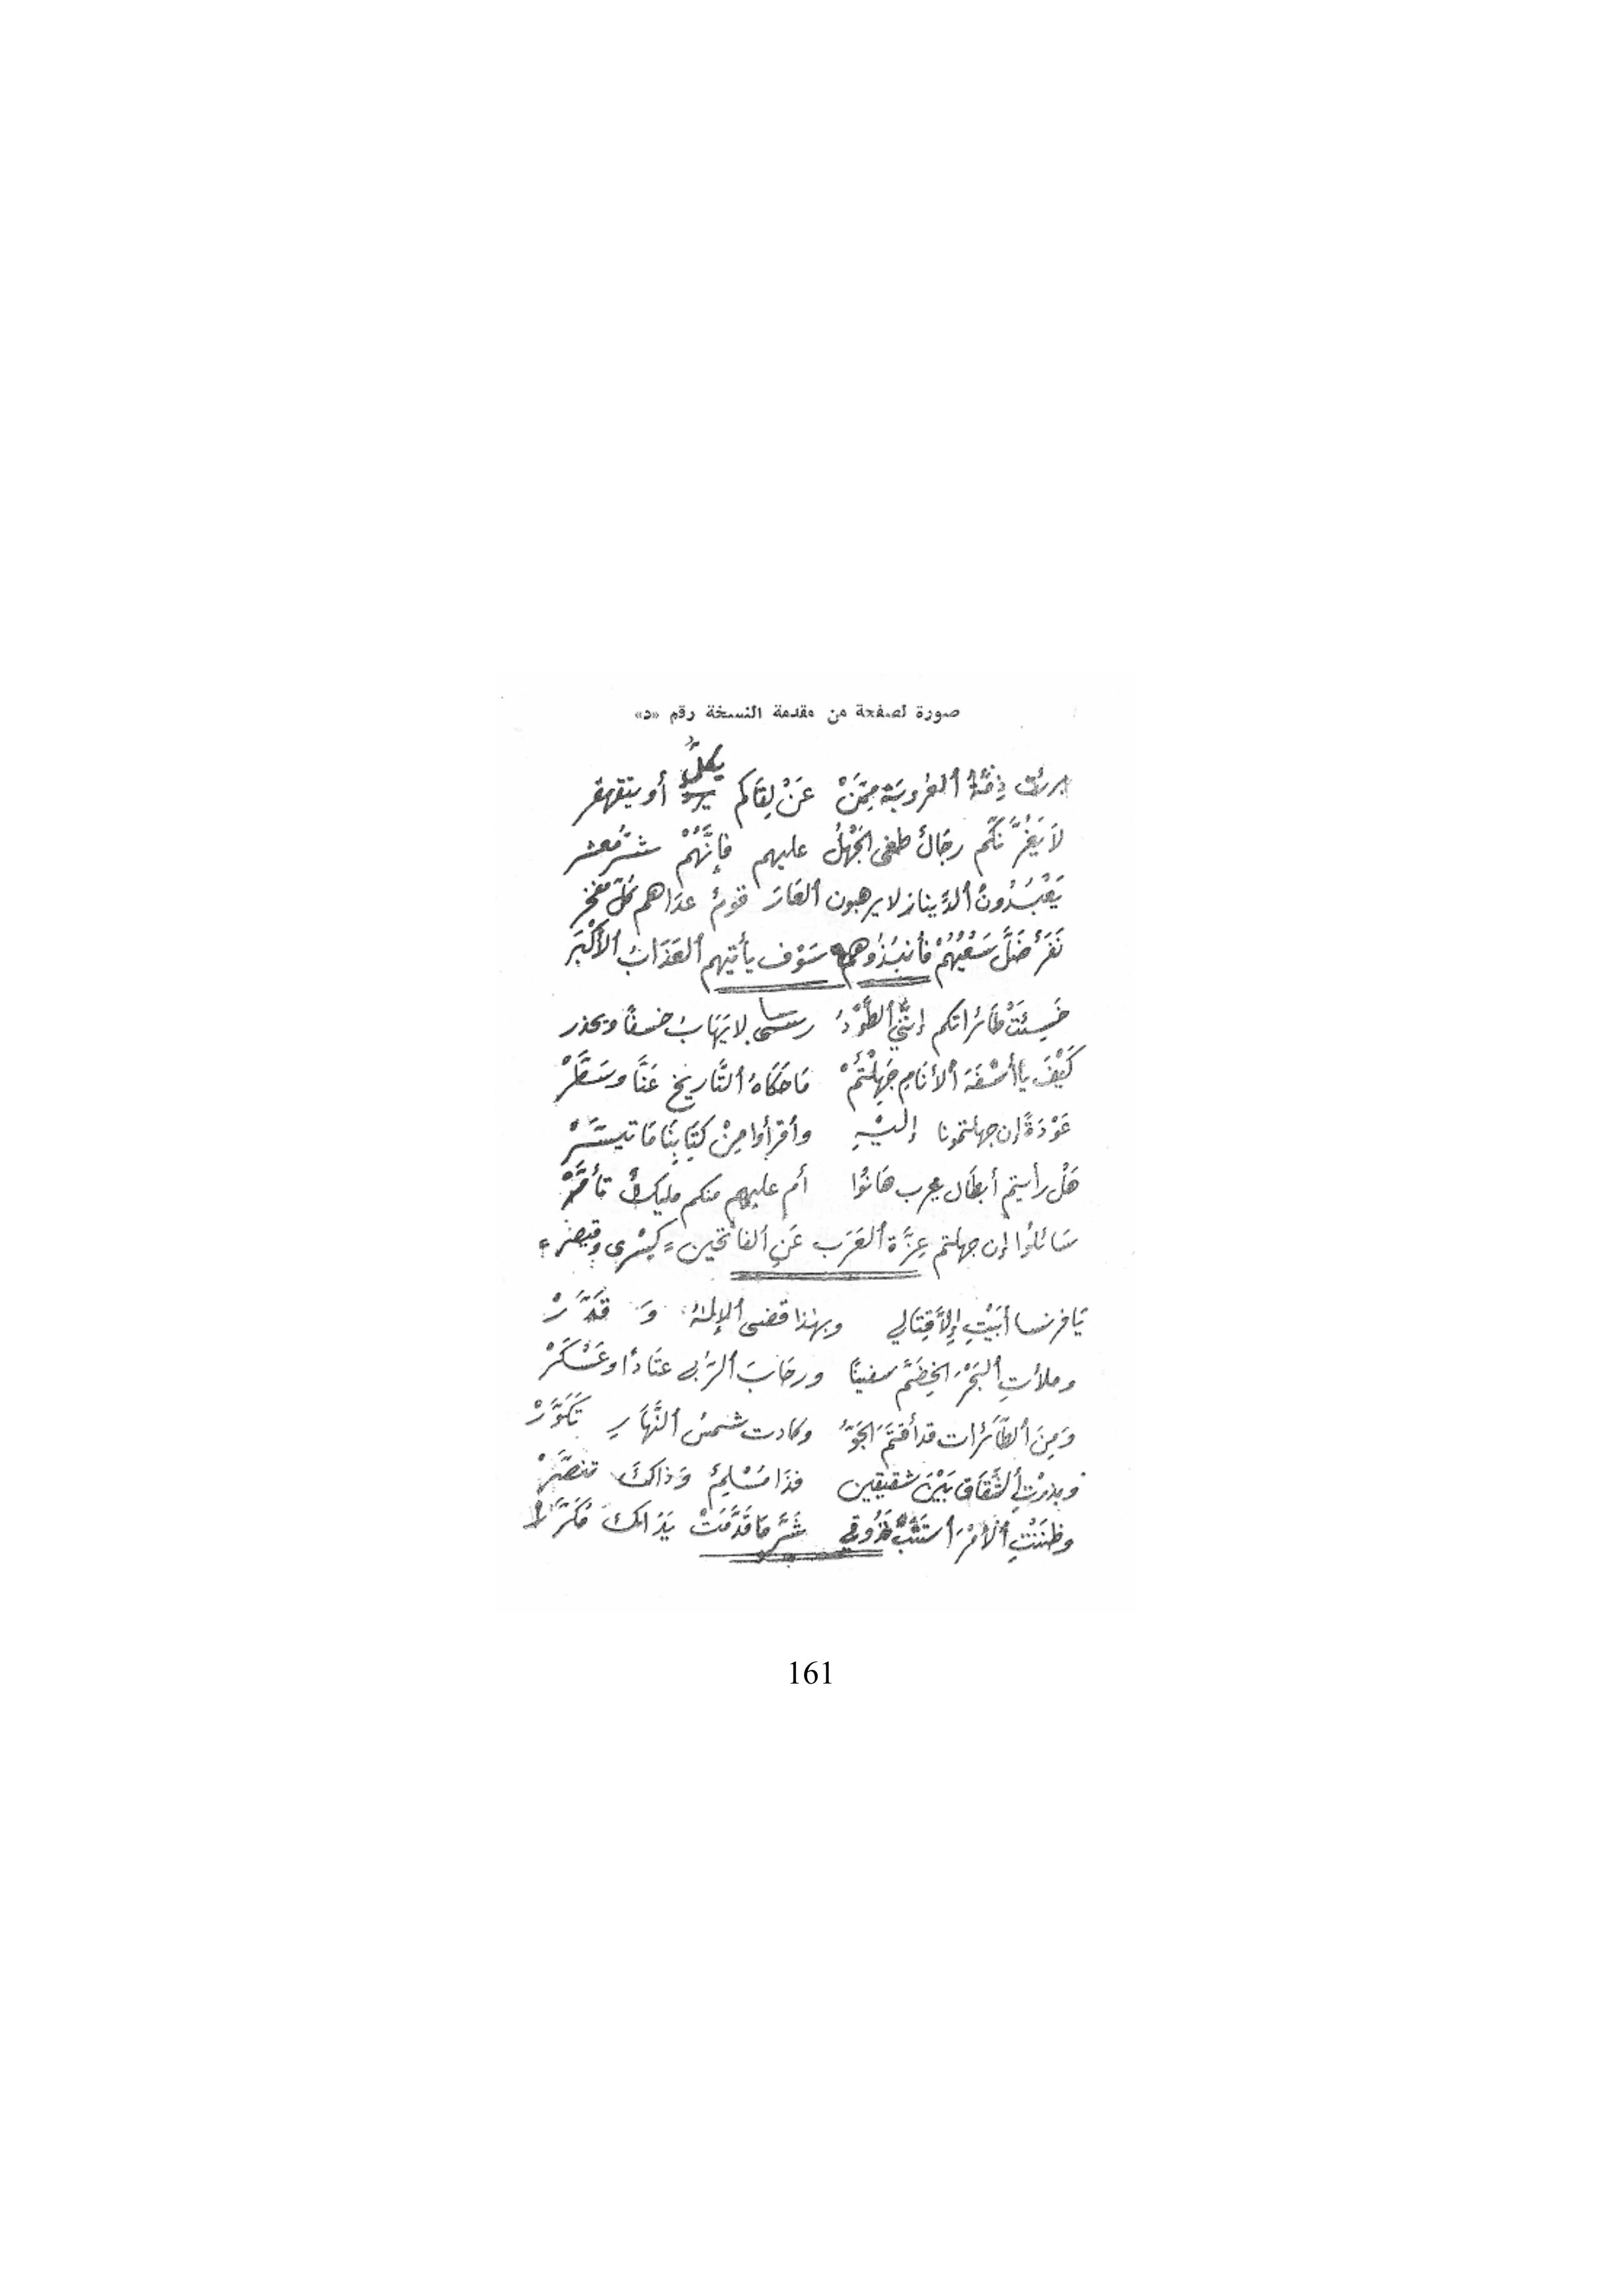 صورة لصفحة من مقدمة النسخة رقم «د»
يكلّ
برئت ذِمَّةُ العُروبَة مِمَّنْ عَنْ لِقَاكم أو يتقهقر
لاَ يَغُرَّنَّكُم رجَالٌ طغى الجَهْلُ عليهم فإنَّهُمْ شرُّ معشر
يَعْبُدُونَ ألدِّينارَ لا يرهبون ألعَارَ قومٌ عدَاهم كلّ مفخر
نَفَرٌ ضَلَّ سَعْيُهُمْ فأنبُذُوهم سَوْف يأتيهم ألعَذَابُ الأكْبَرَ
خَسِئَتْ طَائرَاتكم إنَّني ألطَّوْدُ رسى لا يَهَابُ خسفًا ويحذر
كَيْفَ يا أسْفَهَ ألأنَامِ جَهِلْتُمْ مَا حَكَاهُ التَّاريخ عَنَّا وسَطَّرْ
عَوْدَةً إن جهلتمونا إليْهِ وأقرأوا مِنْ كِتَابِنَا مَا تيسَّرْ
هَلْ رأيتم أبطَال عرب هَانُوا أم عليهم منكم مليكٌ تأمَّرْ
سَائلُوا إن جهلتم عِزَّة ألعَرَب عَنِ ألفاتحين = كِسْرى وقيصر =
يَا فرنسا أبَيْتِ إلاَّ قِتَالي وبهذا قضى ألإلهُ وَ قَدَّرْ
وملأتِ ألبَحْرَ الخِضَمَّ سفينًا ورحَابَ ألرُّبى عتَادًا وعَسْكَرْ
وَمِنَ ألطَّائرَات قد أقتَمَ الجَوُّ وكادت شمسُ ألنَّهَارِ تَكَوَّرْ
وبذرْتِ ألشِّقَاقَ بَيْنَ شقيقين فذَا مُسْلِمٌ وَذاكَ تنصَّرْ
وظنَنْتِ ألأمْرَ أستَتَبَّ فَذُوقي شَرَّ مَا قَدَّمَتْ يَدَاكَ
161